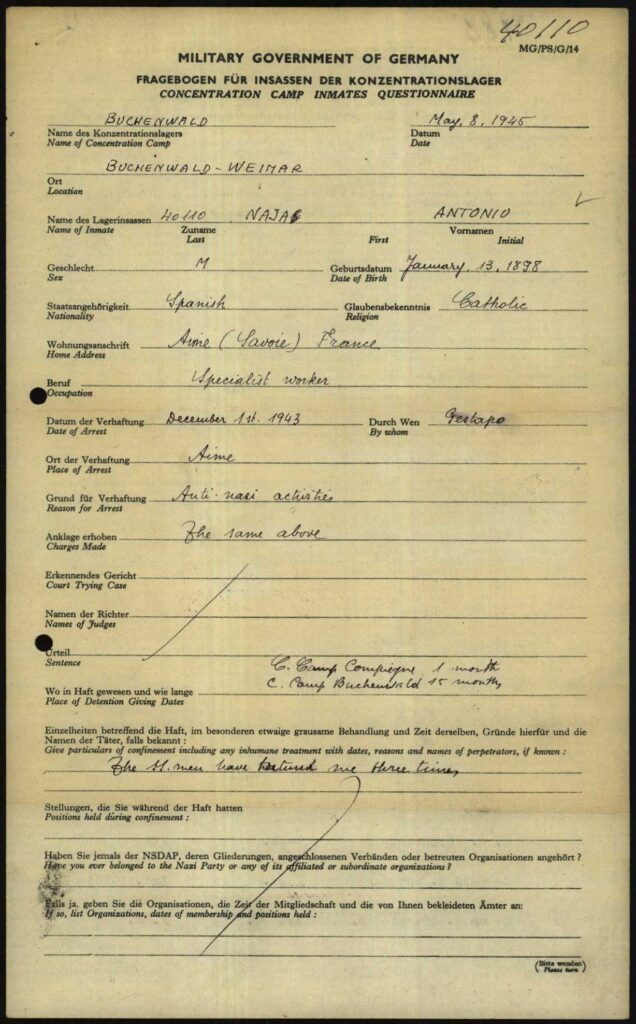 40110
MG/PS/G/14
MILITARY GOVERNMENT OF GERMANY
FRAGEBOGEN FÜR INSASSEN DER KONZENTRATIONSLAGER
CONCENTRATION CAMP INMATES QUESTIONNAIRE
BUCHENWALD May, 8, 1945
Name des Konzentrationslagers Datum
Name of Concentration Camp Date
BUCHENWALD-WEIMAR
Ort
Location
Name des Lagerinsassen 40110 ANTONIO
Name of Inmate Zuname Vornamen
Last First Initial
Geschlecht M Geburtsdatum January, 13, 1898
Sex Date of Birth
Staatsangehörigkeit Spanish Glaubensbekenntnis Catholic
Nationality Religion
Wohnungsanschrift Aime (Savoie) France
Home Address
Beruf Specialist worker
Occupation
Datum der Verhaftung December 1st. 1943 Durch Wen Gestapo
Date of Arrest By whom
Ort der Verhaftung Aime
Place of Arrest
Grund für Verhaftung Anti-nazi activities
Reason for Arrest
Anklage erhoben The same above
Charges Made
Erkennendes Gericht
Court Trying Case
Namen der Richter
Names of Judges
Urteil
Sentence
C. Camp Compiegne 1 month
C. Camp Buchenwald 15 months
Wo in Haft gewesen und wie lange
Place of Detention Giving Dates
Einzelheiten betreffend die Haft, im besonderen etwaige grausame Behandlung und Zeit derselben, Gründe hierfür und die
Namen der Täter, falls bekannt :
Give particulars of confinement including any inhumane treatment with dates, reasons and names of perpetrators, if known :
The have tortured me three times
Stellungen, die Sie während der Haft hatten
Positions held during confinement :
Haben Sie jemals der NSDAP, deren Gliederungen, angeschlossenen Verbänden oder betreuten Organisationen angehört ?
Have you ever belonged to the Nazi Party or any of its affiliated or subordinate organizations ?
Falls ja, geben Sie die Organisationen, die Zeit der Mitgliedschaft und die von Ihnen bekleideten Ämter an:
If so, list Organizations, dates of membership and positions held :
(Bitte wenden
Please turn)